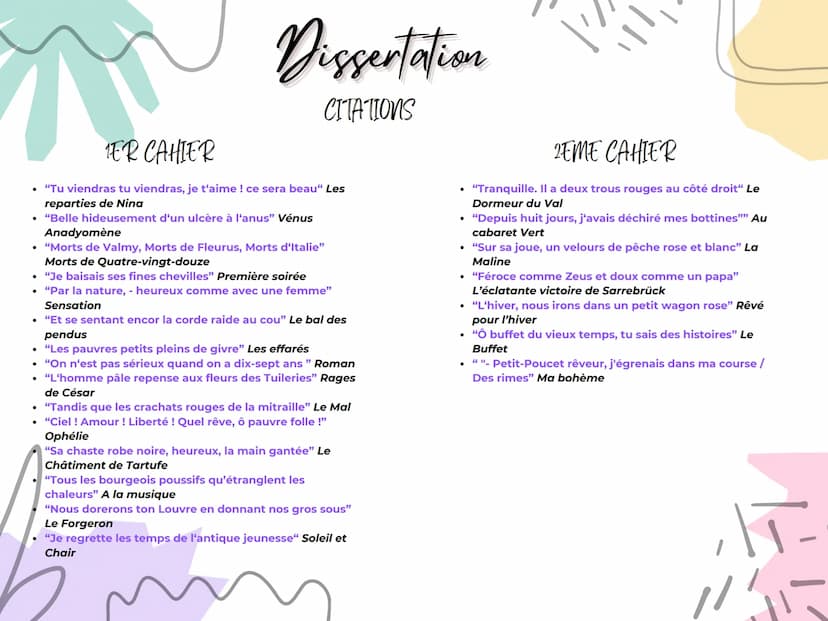 Dissertation
CITATIONS
1ER CAHIER
“Tu viendras tu viendras, je t'aime ! ce sera beau“ Les
reparties de Nina
“Belle hideusement d'un ulcère à l'anus” Vénus
Anadyomène
“Morts de Valmy, Morts de Fleurus, Morts d'Italie”
Morts de Quatre-vingt-douze
“Je baisais ses fines chevilles” Première soirée
“Par la nature, - heureux comme avec une femme”
Sensation
“Et se sentant encor la corde raide au cou” Le bal des
pendus
“Les pauvres petits pleins de givre” Les effarés
“On n'est pas sérieux quand on a dix-sept ans ” Roman
“L'homme pâle repense aux fleurs des Tuileries” Rages
de César
“Tandis que les crachats rouges de la mitraille” Le Mal
“Ciel ! Amour ! Liberté ! Quel rêve, ô pauvre folle !”
Ophélie
“Sa chaste robe noire, heureux, la main gantée” Le
Châtiment de Tartufe
“Tous les bourgeois poussifs qu’étranglent les
chaleurs” A la musique
“Nous dorerons ton Louvre en donnant nos gros sous”
Le Forgeron
“Je regrette les temps de l'antique jeunesse“ Soleil et
Chair
2EME CAHIER
“Tranquille. Il a deux trous rouges au côté droit“ Le
Dormeur du Val
“Depuis huit jours, j'avais déchiré mes bottines”” Au
cabaret Vert
“Sur sa joue, un velours de pêche rose et blanc” La
Maline
“Féroce comme Zeus et doux comme un papa”
L’éclatante victoire de Sarrebrück
“L'hiver, nous irons dans un petit wagon rose” Rêvé
pour l’hiver
“Ô buffet du vieux temps, tu sais des histoires” Le
Buffet
“ "- Petit-Poucet rêveur, j'égrenais dans ma course /
Des rimes” Ma bohème